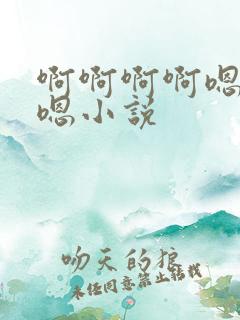 啊啊啊啊嗯
嗯小说
吻天的狼
未经同意禁止转载